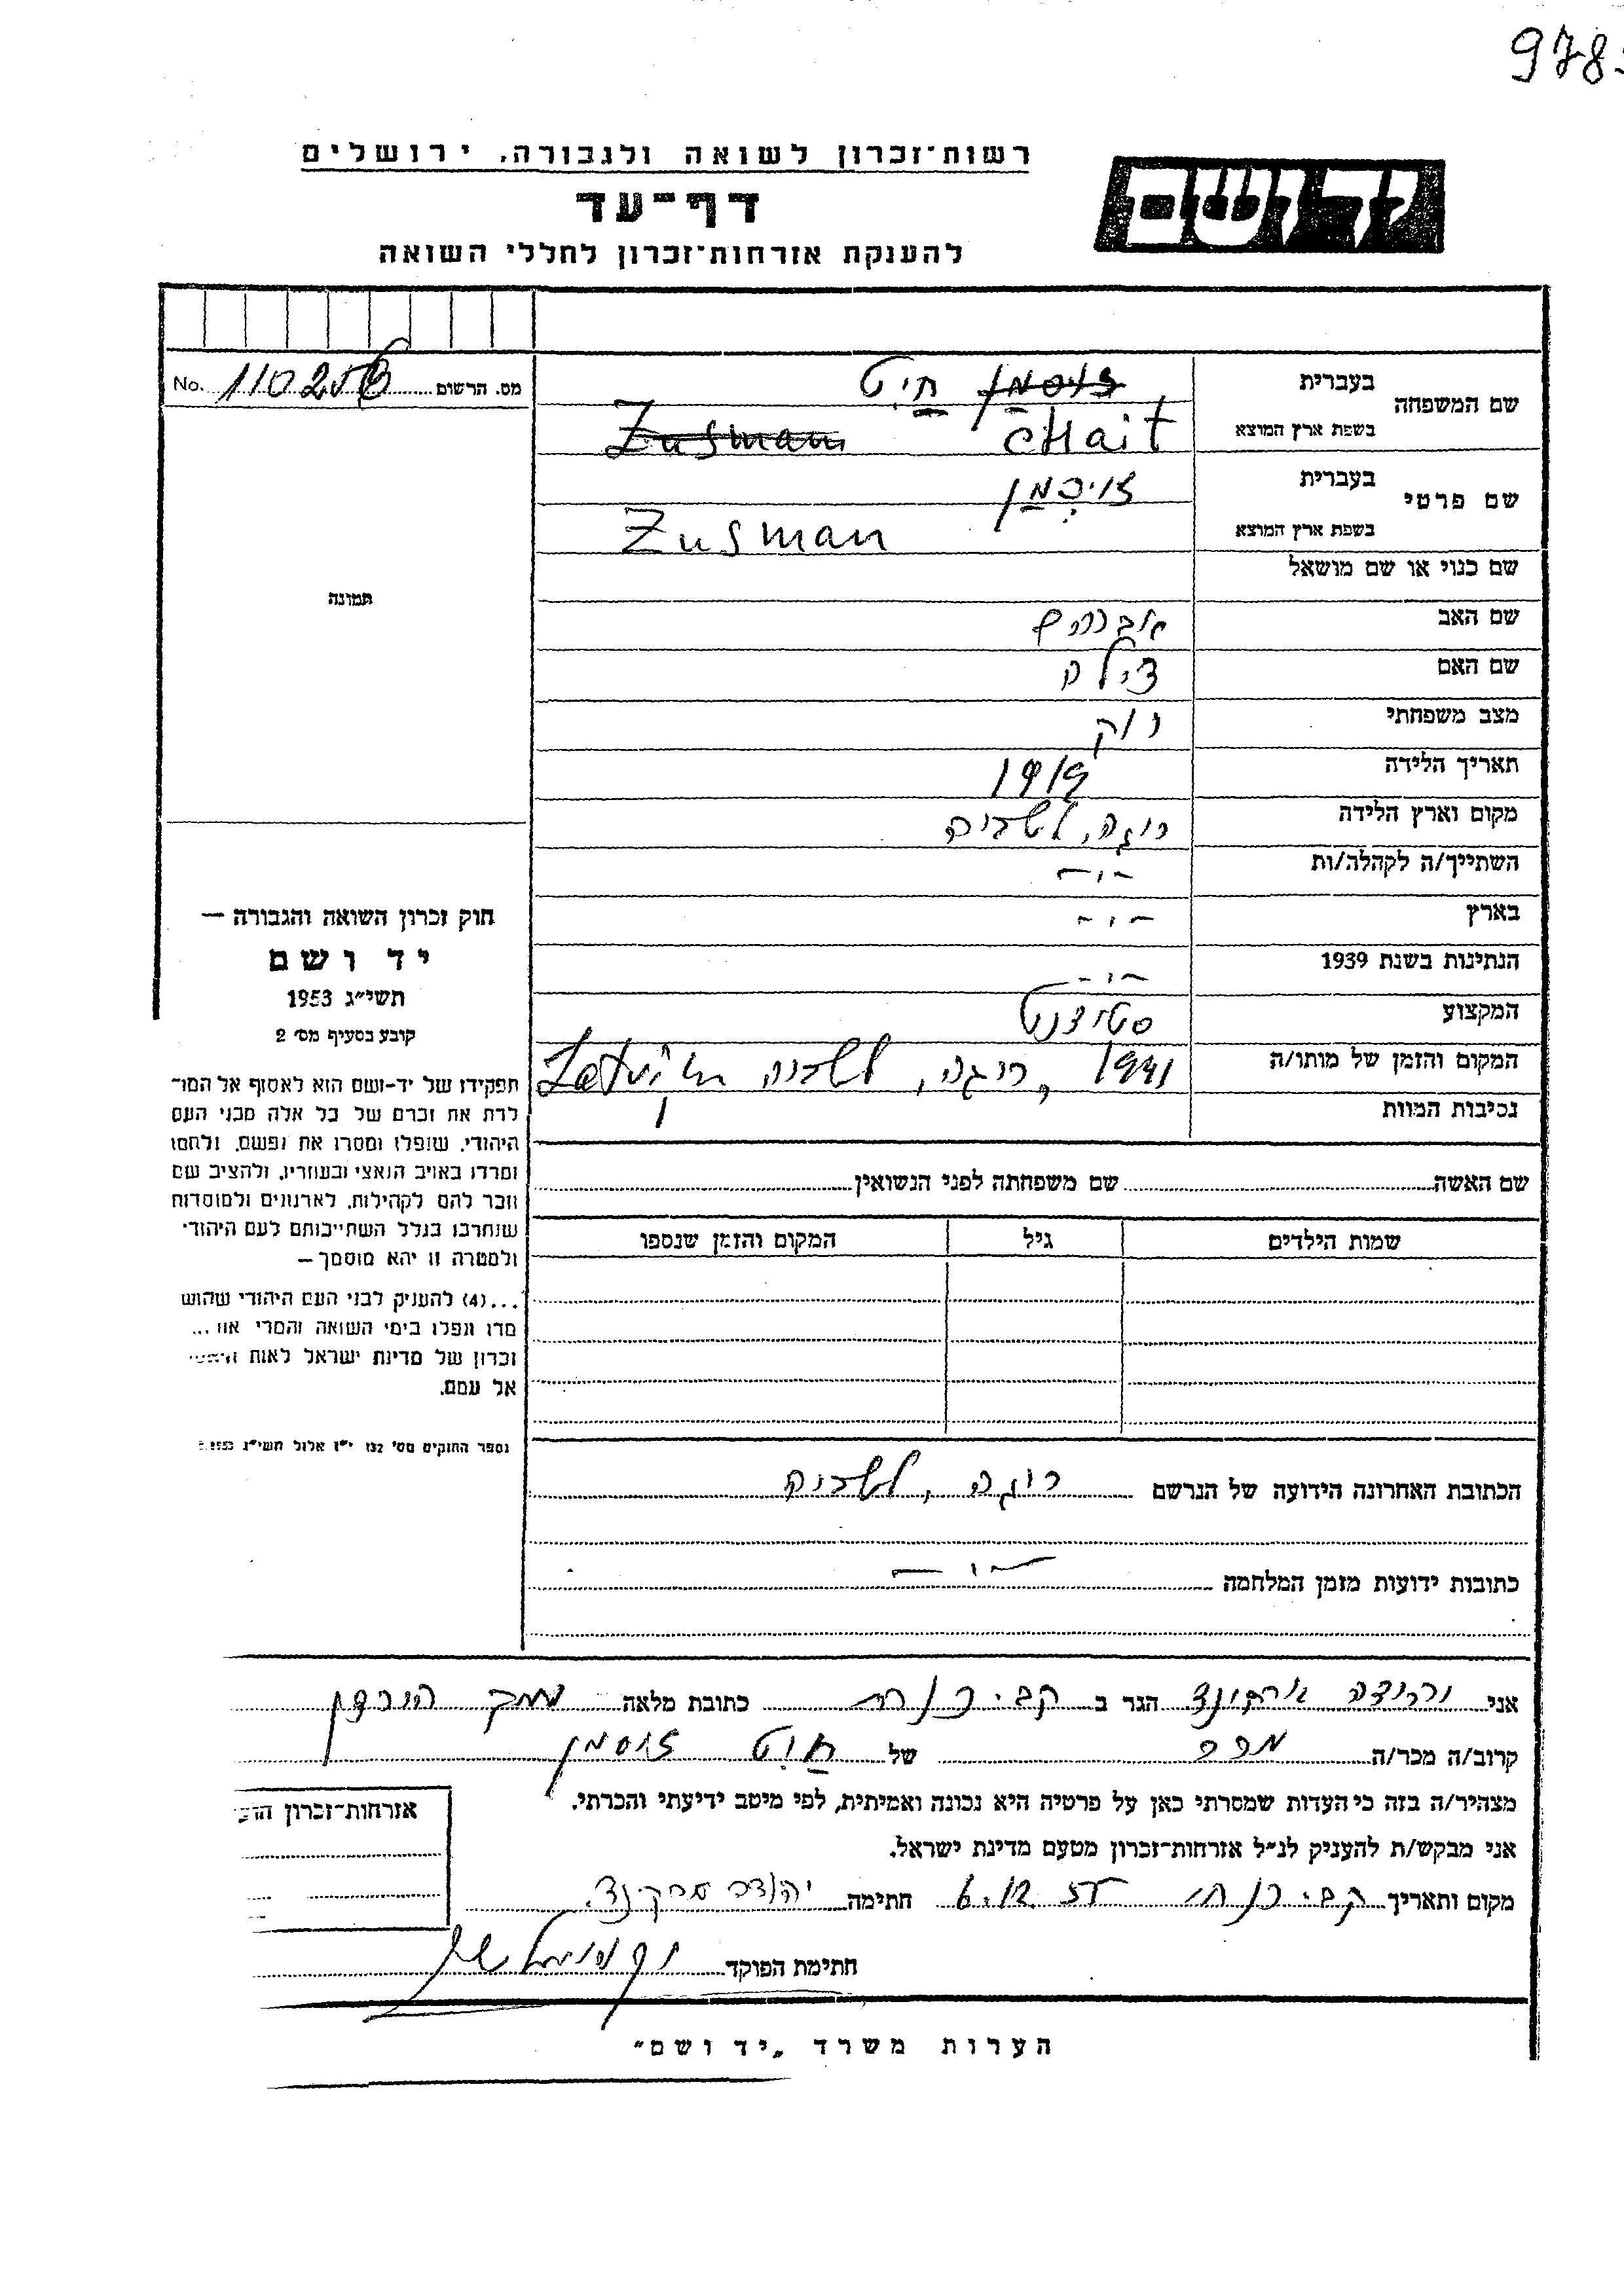 978
רשות־זכרון לשואה ולגבורה, ירושלים
יד ושם
דף־עד
להענקת אזרחות־זכרון לחללי השואה
מס. הרשום No. 110256
שם המשפחה בעברית זוסמן חיט
בשפת ארץ המוצא Zusman cHait
שם פרטי בעברית זוסמן
בשפת ארץ המוצא Zusman
שם כנוי או שם מושאל
תמונה
שם האב אברהם
שם האם צילה
מצב משפחתי רווק
תאריך הלידה 1919
מקום וארץ הלידה ריגה, לטביה
השתייך/ה לקהלה/ות -"-
בארץ -"-
הנתינות בשנת 1939 -"-
המקצוע סטודנט
המקום והזמן של מותו/ה 1941, ריגה, לטביה
נסיבות המוות
חוק זכרון השואה והגבורה —
יד ושם
תשי״ג 1953
קובע בסעיף מס׳ 2
תפקידו של יד-ושם הוא לאסוף אל המו־
לדת את זכרם של כל אלה מבני העם
היהודי, שנפלו ומסרו את נפשם, נלחמו
ומרדו באויב הנאצי ובעוזריו, ולהציב שם
וזכר להם לקהילות, לארגונים ולמוסדות
שנחרבו בגלל השתייכותם לעם היהודי
ולמטרה זו יהא מוסמך —
...(4) להעניק לבני העם היהודי שהוש
מדו ונפלו בימי השואה והמרי אז...
זכרון של מדינת ישראל לאות
אל עמם.
ספר החוקים מס׳ 132 י״ז אלול תשי״ג 1953
שם האשה שם משפחתה לפני הנשואין
שמות הילדים גיל המקום והזמן שנספו
הכתובת האחרונה הידועה של הנרשם ריגה, לטביה
כתובות ידועות מזמן המלחמה -"-
אני הגר ב קב. כנרת כתובת מלאה עמק הירדן
קרוב/ה מכר/ה מכר של חיט זוסמן
מצהיר/ה בזה כי העדות שמסרתי כאן על פרטיה היא נכונה ואמיתית, לפי מיטב ידיעתי והכרתי.
אני מבקש/ת להעניק לנ״ל אזרחות־זכרון מטעם מדינת ישראל.
אזרחות־זכרון
מקום ותאריך קב. כנרת חתימה
חתימת הפוקד
הערות משרד „יד ושם״